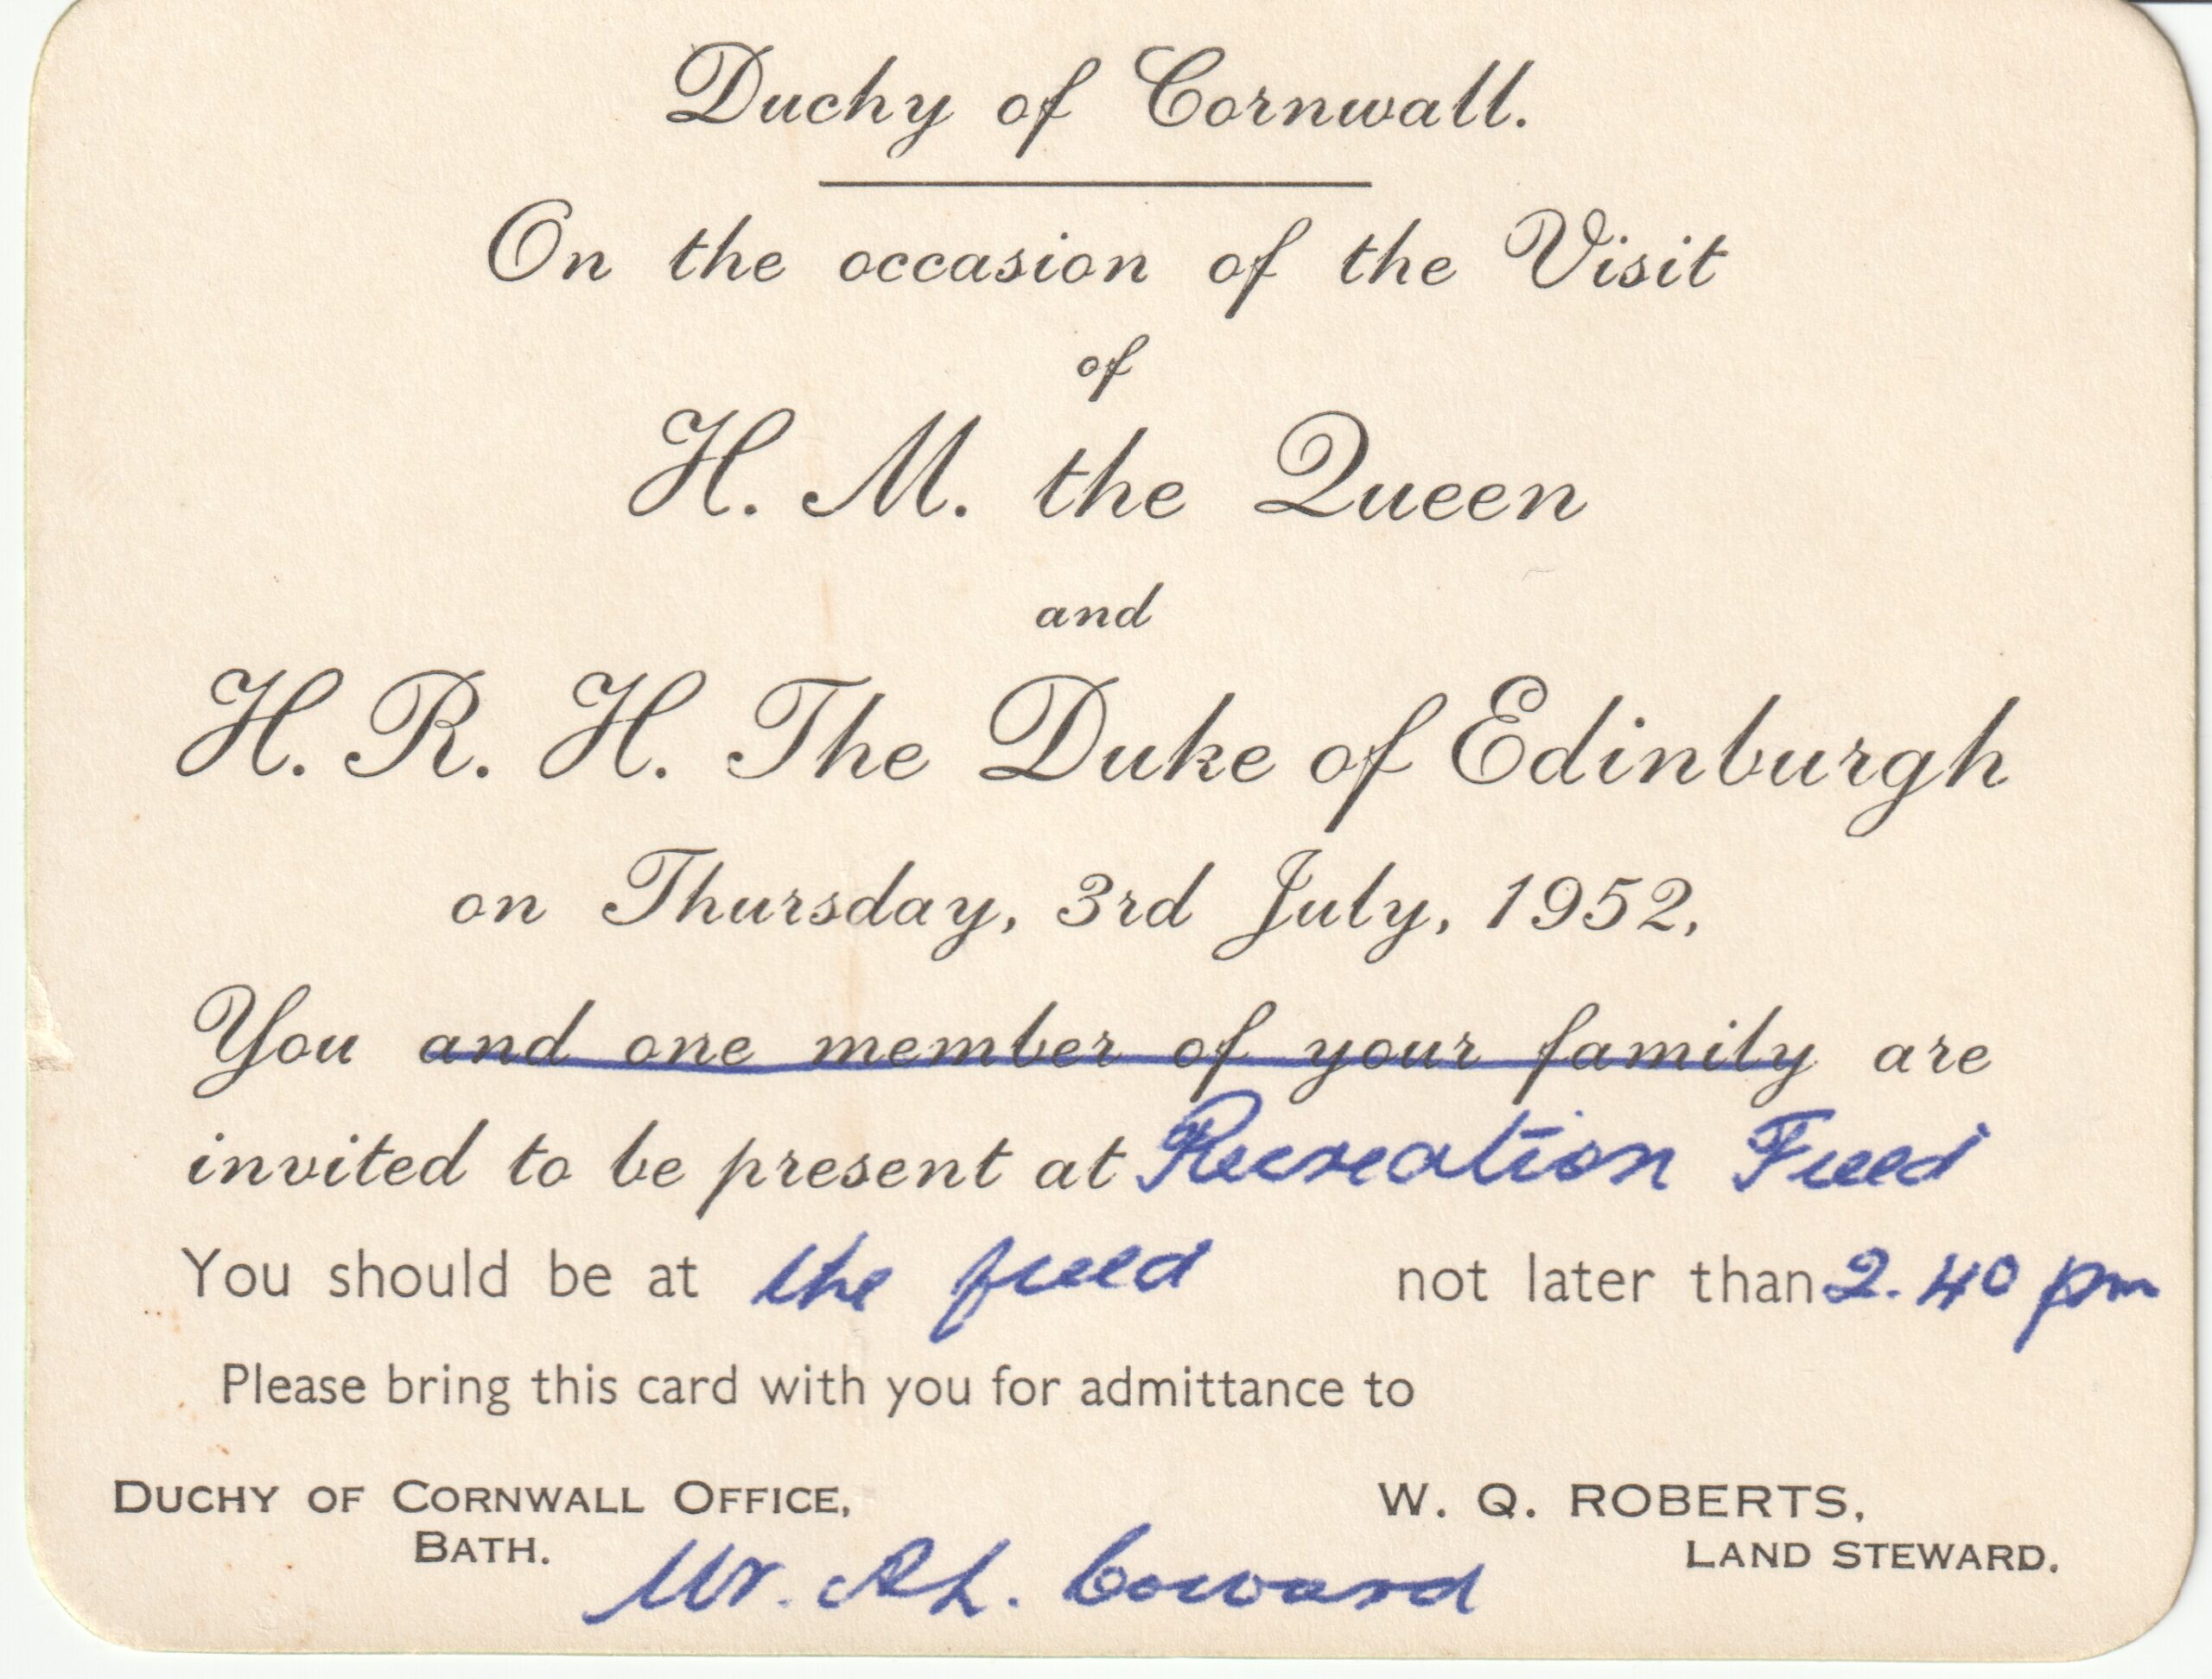 Duchy of Cornwall.
On the occasion of the Visit
of
H. M. the Queen
and
H. R. H. The Duke of Edinburgh
on Thursday, 3rd July, 1952,
You and one member of your family are
invited to be present at Recreation Field
You should be at the field not later than 2.40 pm
Please bring this card with you for admittance to
DUCHY OF CORNWALL OFFICE,
BATH.
W. Q. ROBERTS,
LAND STEWARD.
Mr. A L. Coward